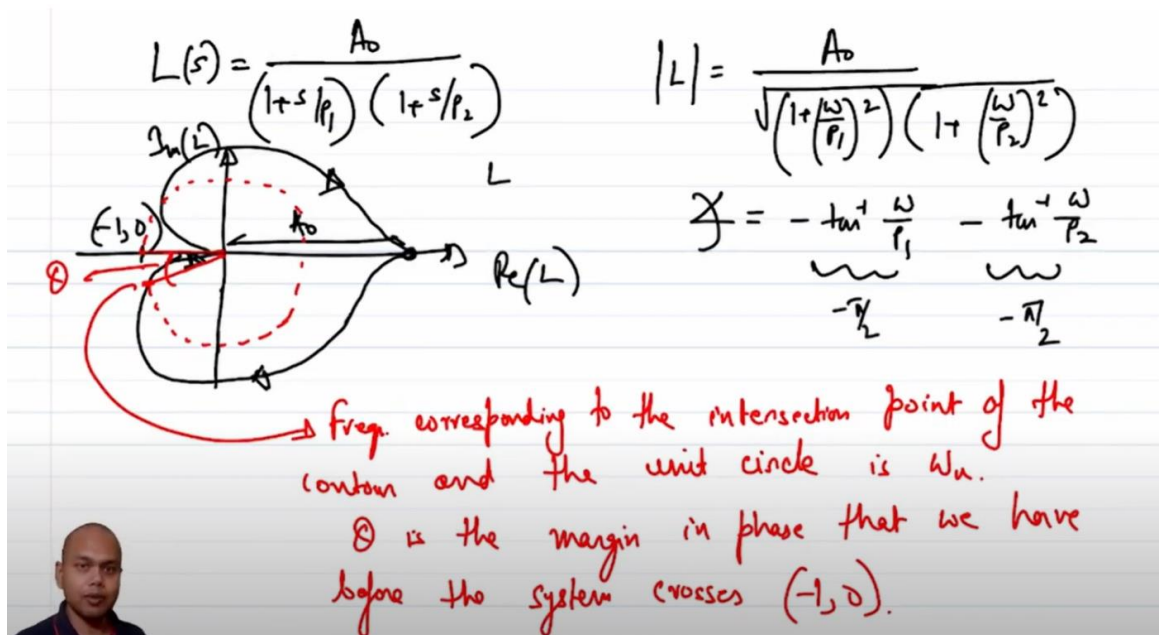 L(s) = A₀ / ((1+s/p₁) (1+s/p₂))
|L| = A₀ / √((1+(ω/p₁)²) (1+(ω/p₂)²))
Im(L)
L
A₀
(-1,0)
θ
Re(L)
∠ = - tan⁻¹ ω/p₁ - tan⁻¹ ω/p₂
-π/2 -π/2
freq. corresponding to the intersection point of the
contour and the unit circle is ωu.
θ is the margin in phase that we have
before the system crosses (-1,0).